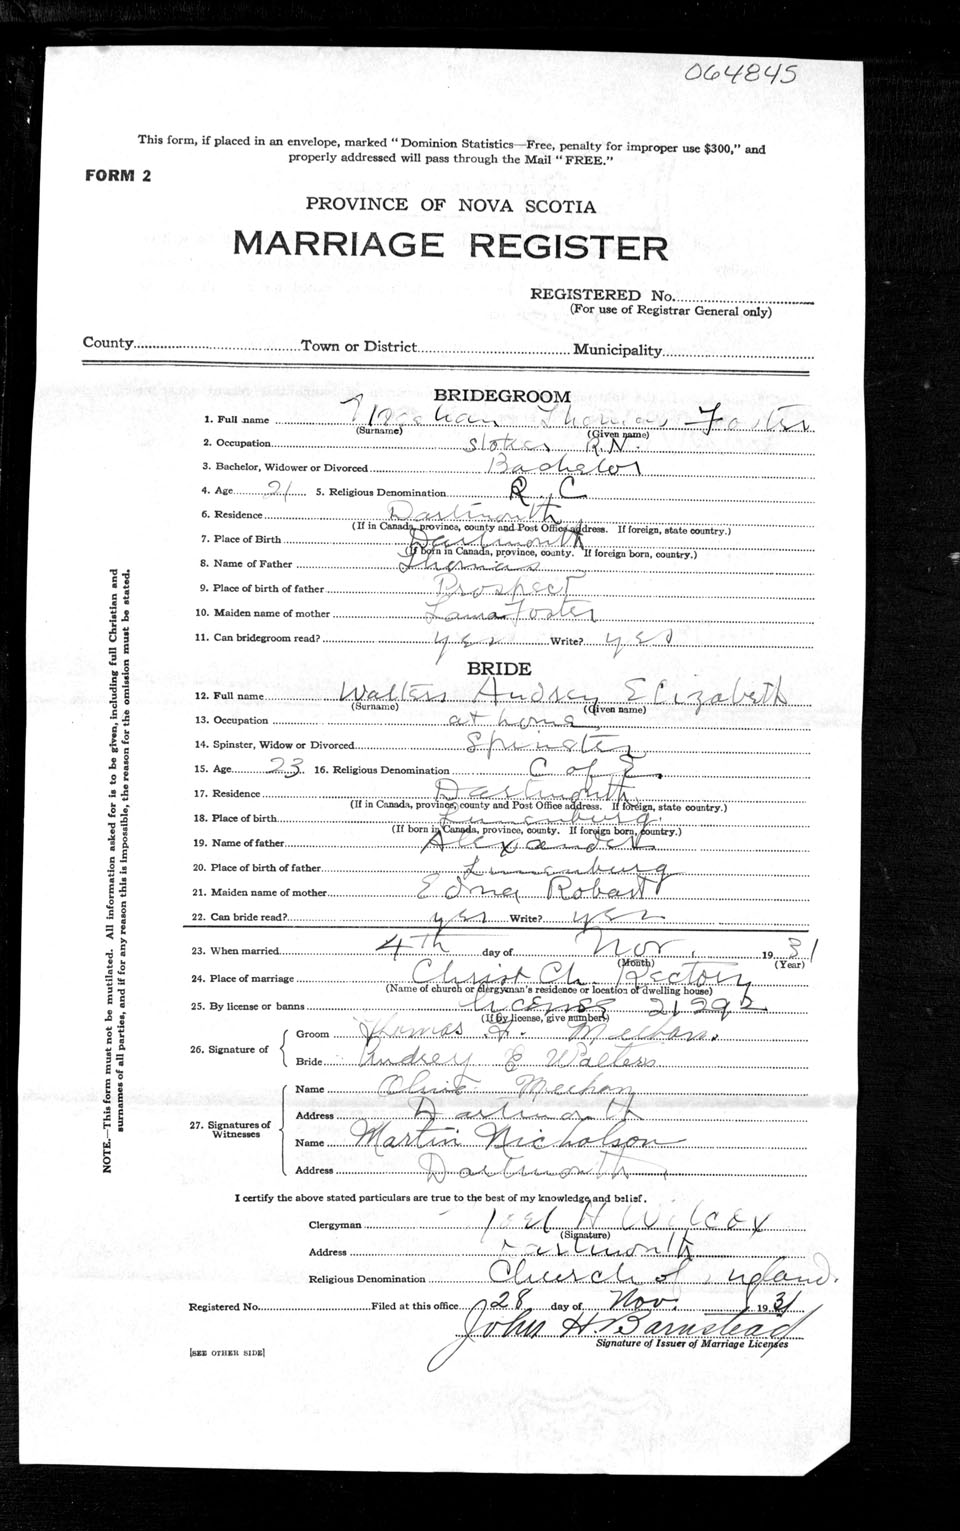 064845
This form, if placed in an envelope, marked "Dominion Statistics—Free, penalty for improper use $300," and
properly addressed will pass through the Mail "FREE."
FORM 2
PROVINCE OF NOVA SCOTIA
MARRIAGE REGISTER
REGISTERED No.
(For use of Registrar General only)
County Town or District Municipality
BRIDEGROOM
1. Full name Meehan Thomas Foster
(Surname) (Given name)
2. Occupation Stoker R.N.
3. Bachelor, Widower or Divorced Bachelor
4. Age 21 5. Religious Denomination R. C
6. Residence Dartmouth
(If in Canada, province, county and Post Office address. If foreign, state country.)
7. Place of Birth Dartmouth
(If born in Canada, province, county. If foreign born, country.)
8. Name of Father Thomas
9. Place of birth of father Prospect
10. Maiden name of mother Foster
11. Can bridegroom read? yes Write? yes
BRIDE
12. Full name Walters Audrey Elizabeth
(Surname) (Given name)
13. Occupation at home
14. Spinster, Widow or Divorced Spinster
15. Age 23 16. Religious Denomination C of E
17. Residence Dartmouth
(If in Canada, province, county and Post Office address. If foreign, state country.)
18. Place of birth Lunenburg
(If born in Canada, province, county. If foreign born, country.)
19. Name of father Alexander
20. Place of birth of father Lunenburg
21. Maiden name of mother Edna Robart
22. Can bride read? yes Write? yes
23. When married 4th day of Nov. 1931
(Month) (Year)
24. Place of marriage Christ Ch. Rectory
(Name of church or clergyman's residence or location of dwelling house)
25. By license or banns License 21292
(If by license, give number)
26. Signature of
Groom Thomas F. Meehan.
Bride Audrey E Walters
27. Signatures of Witnesses
Name Olive Meehan
Address Dartmouth
Name Martin Nicholson
Address Dartmouth
I certify the above stated particulars are true to the best of my knowledge and belief.
Clergyman Noel H Wilcox
(Signature)
Address Dartmouth
Religious Denomination Church of England.
Registered No. Filed at this office 28 day of Nov. 1931
John H. Barnstead
Signature of Issuer of Marriage Licenses
[SEE OTHER SIDE]
NOTE.—This form must not be mutilated. All information asked for is to be given, including full Christian and
surnames of all parties, and if for any reason this is impossible, the reason for the omission must be stated.